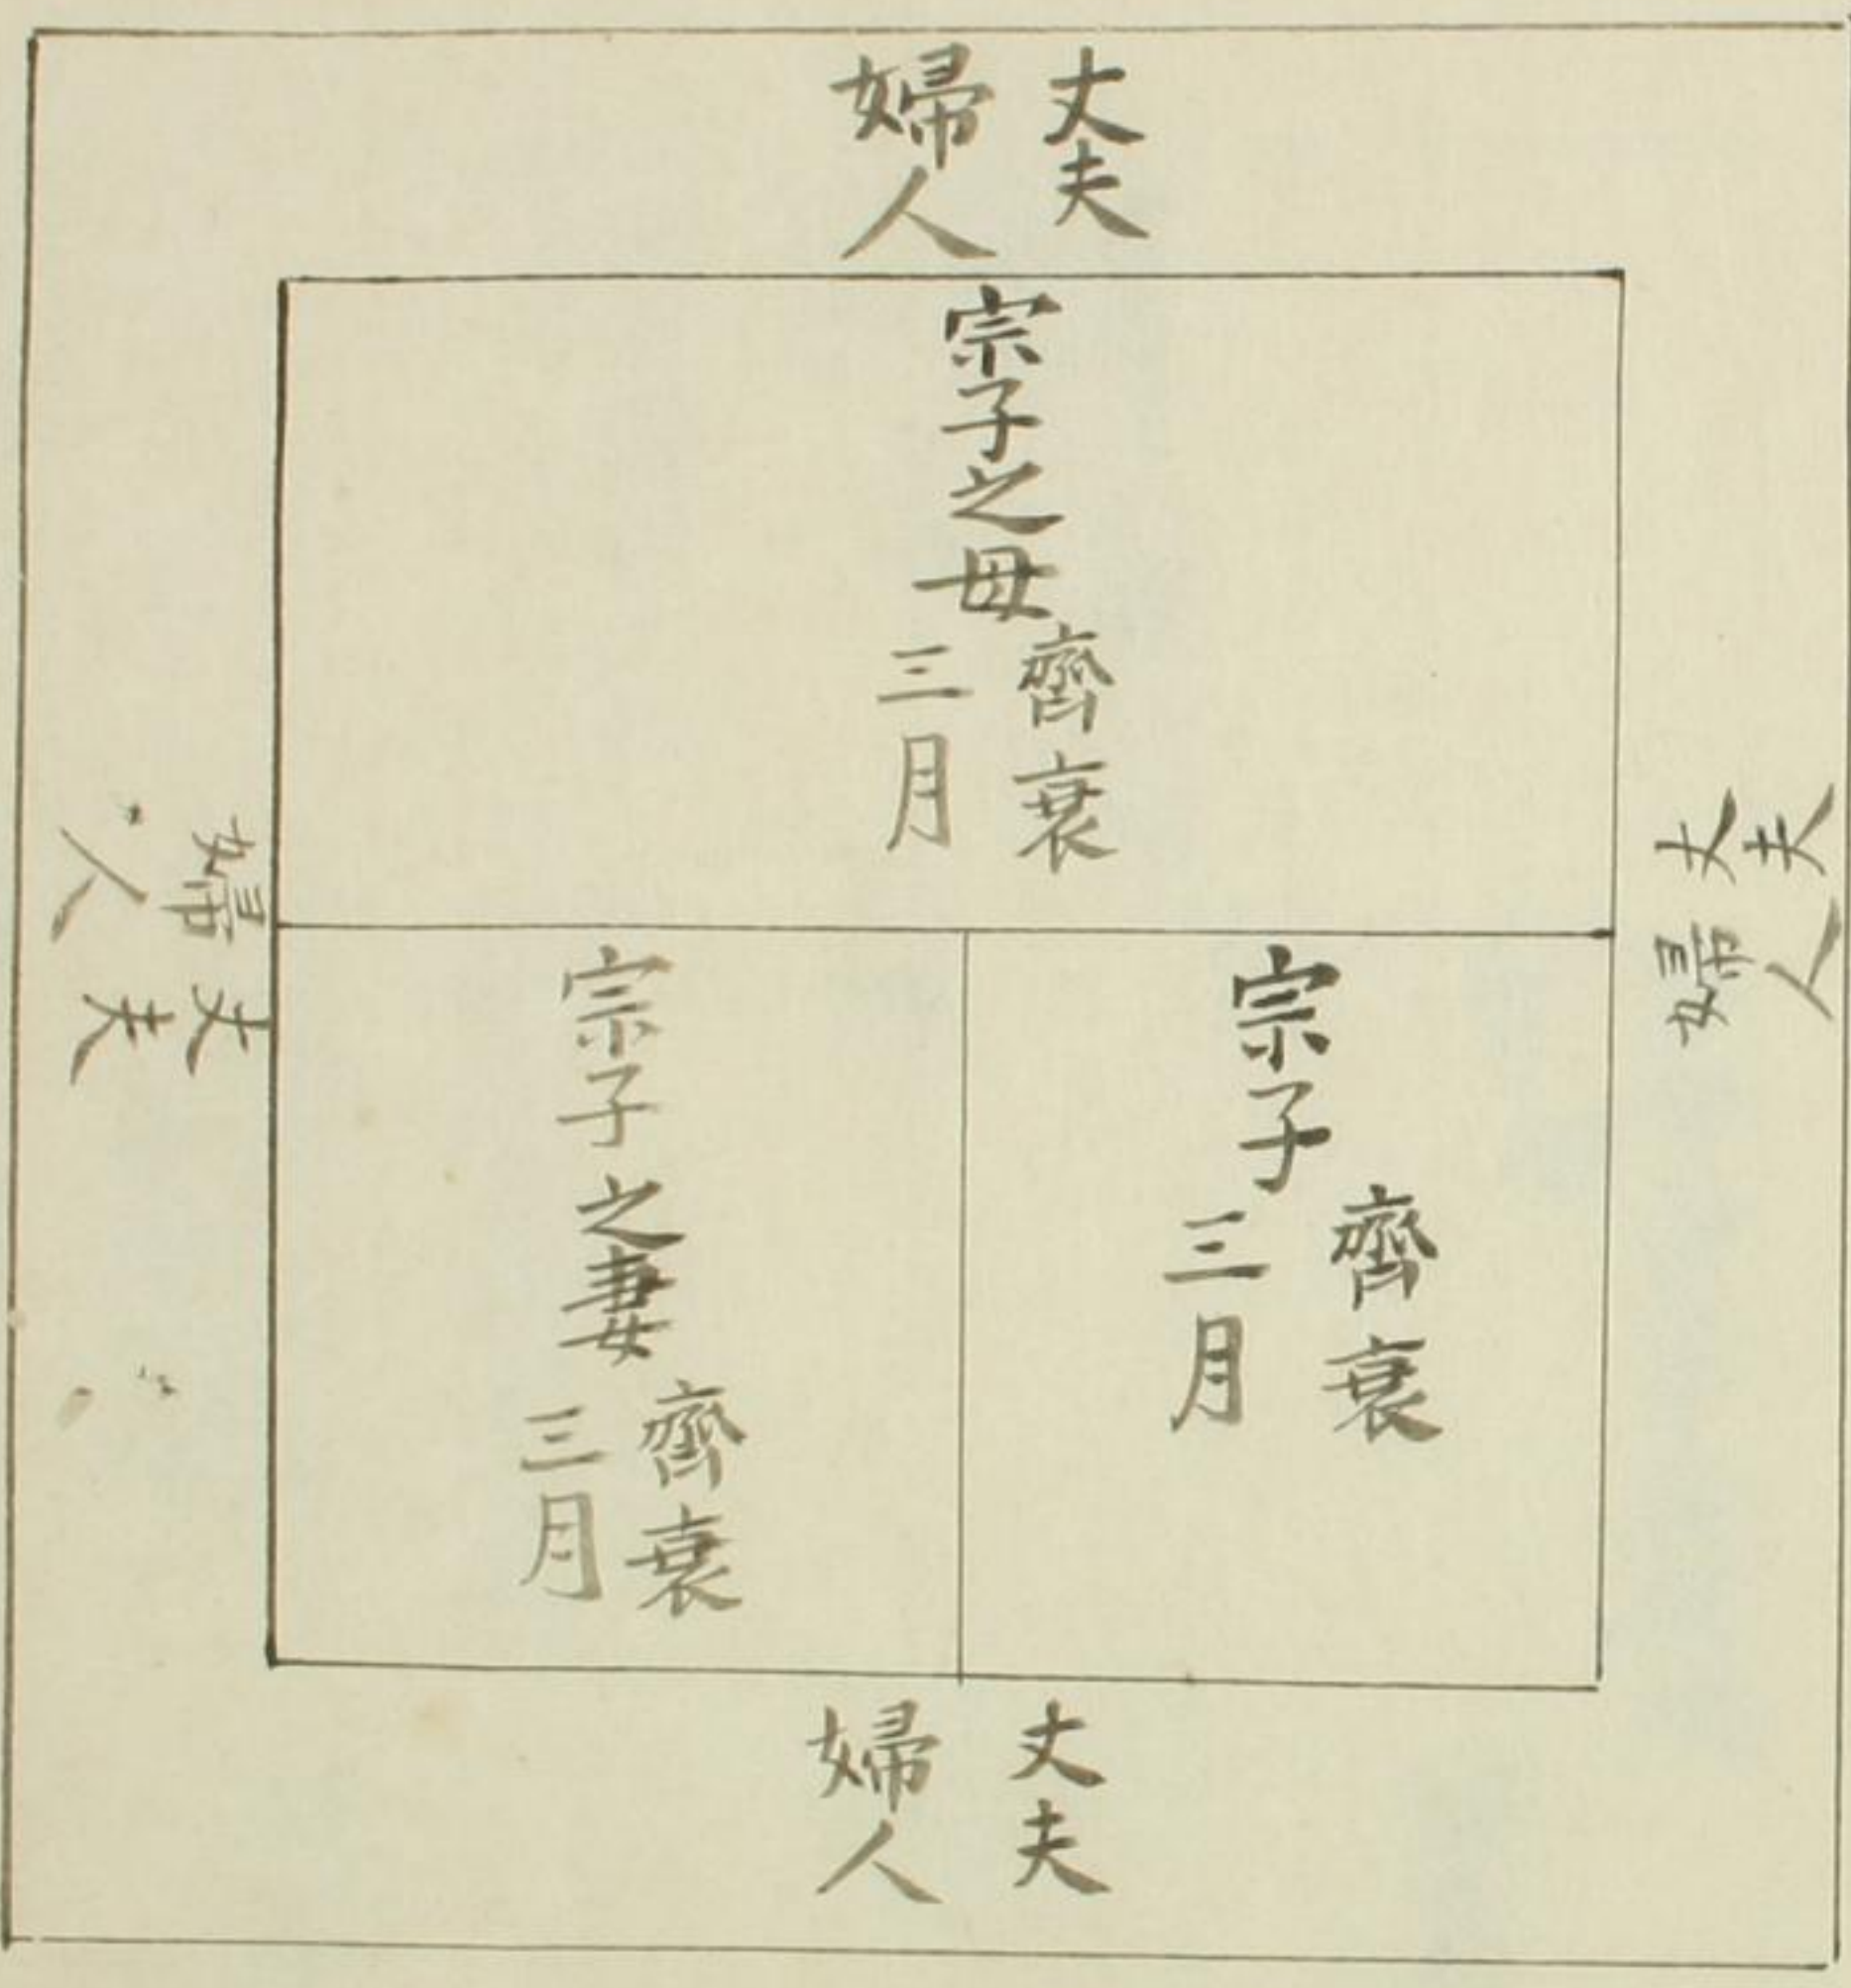 丈夫
婦人
宗子之母
齊衰
三月
丈夫
婦人
宗子
齊衰
三月
宗子之妻
齊衰
三月
丈夫
婦人
丈夫
婦人